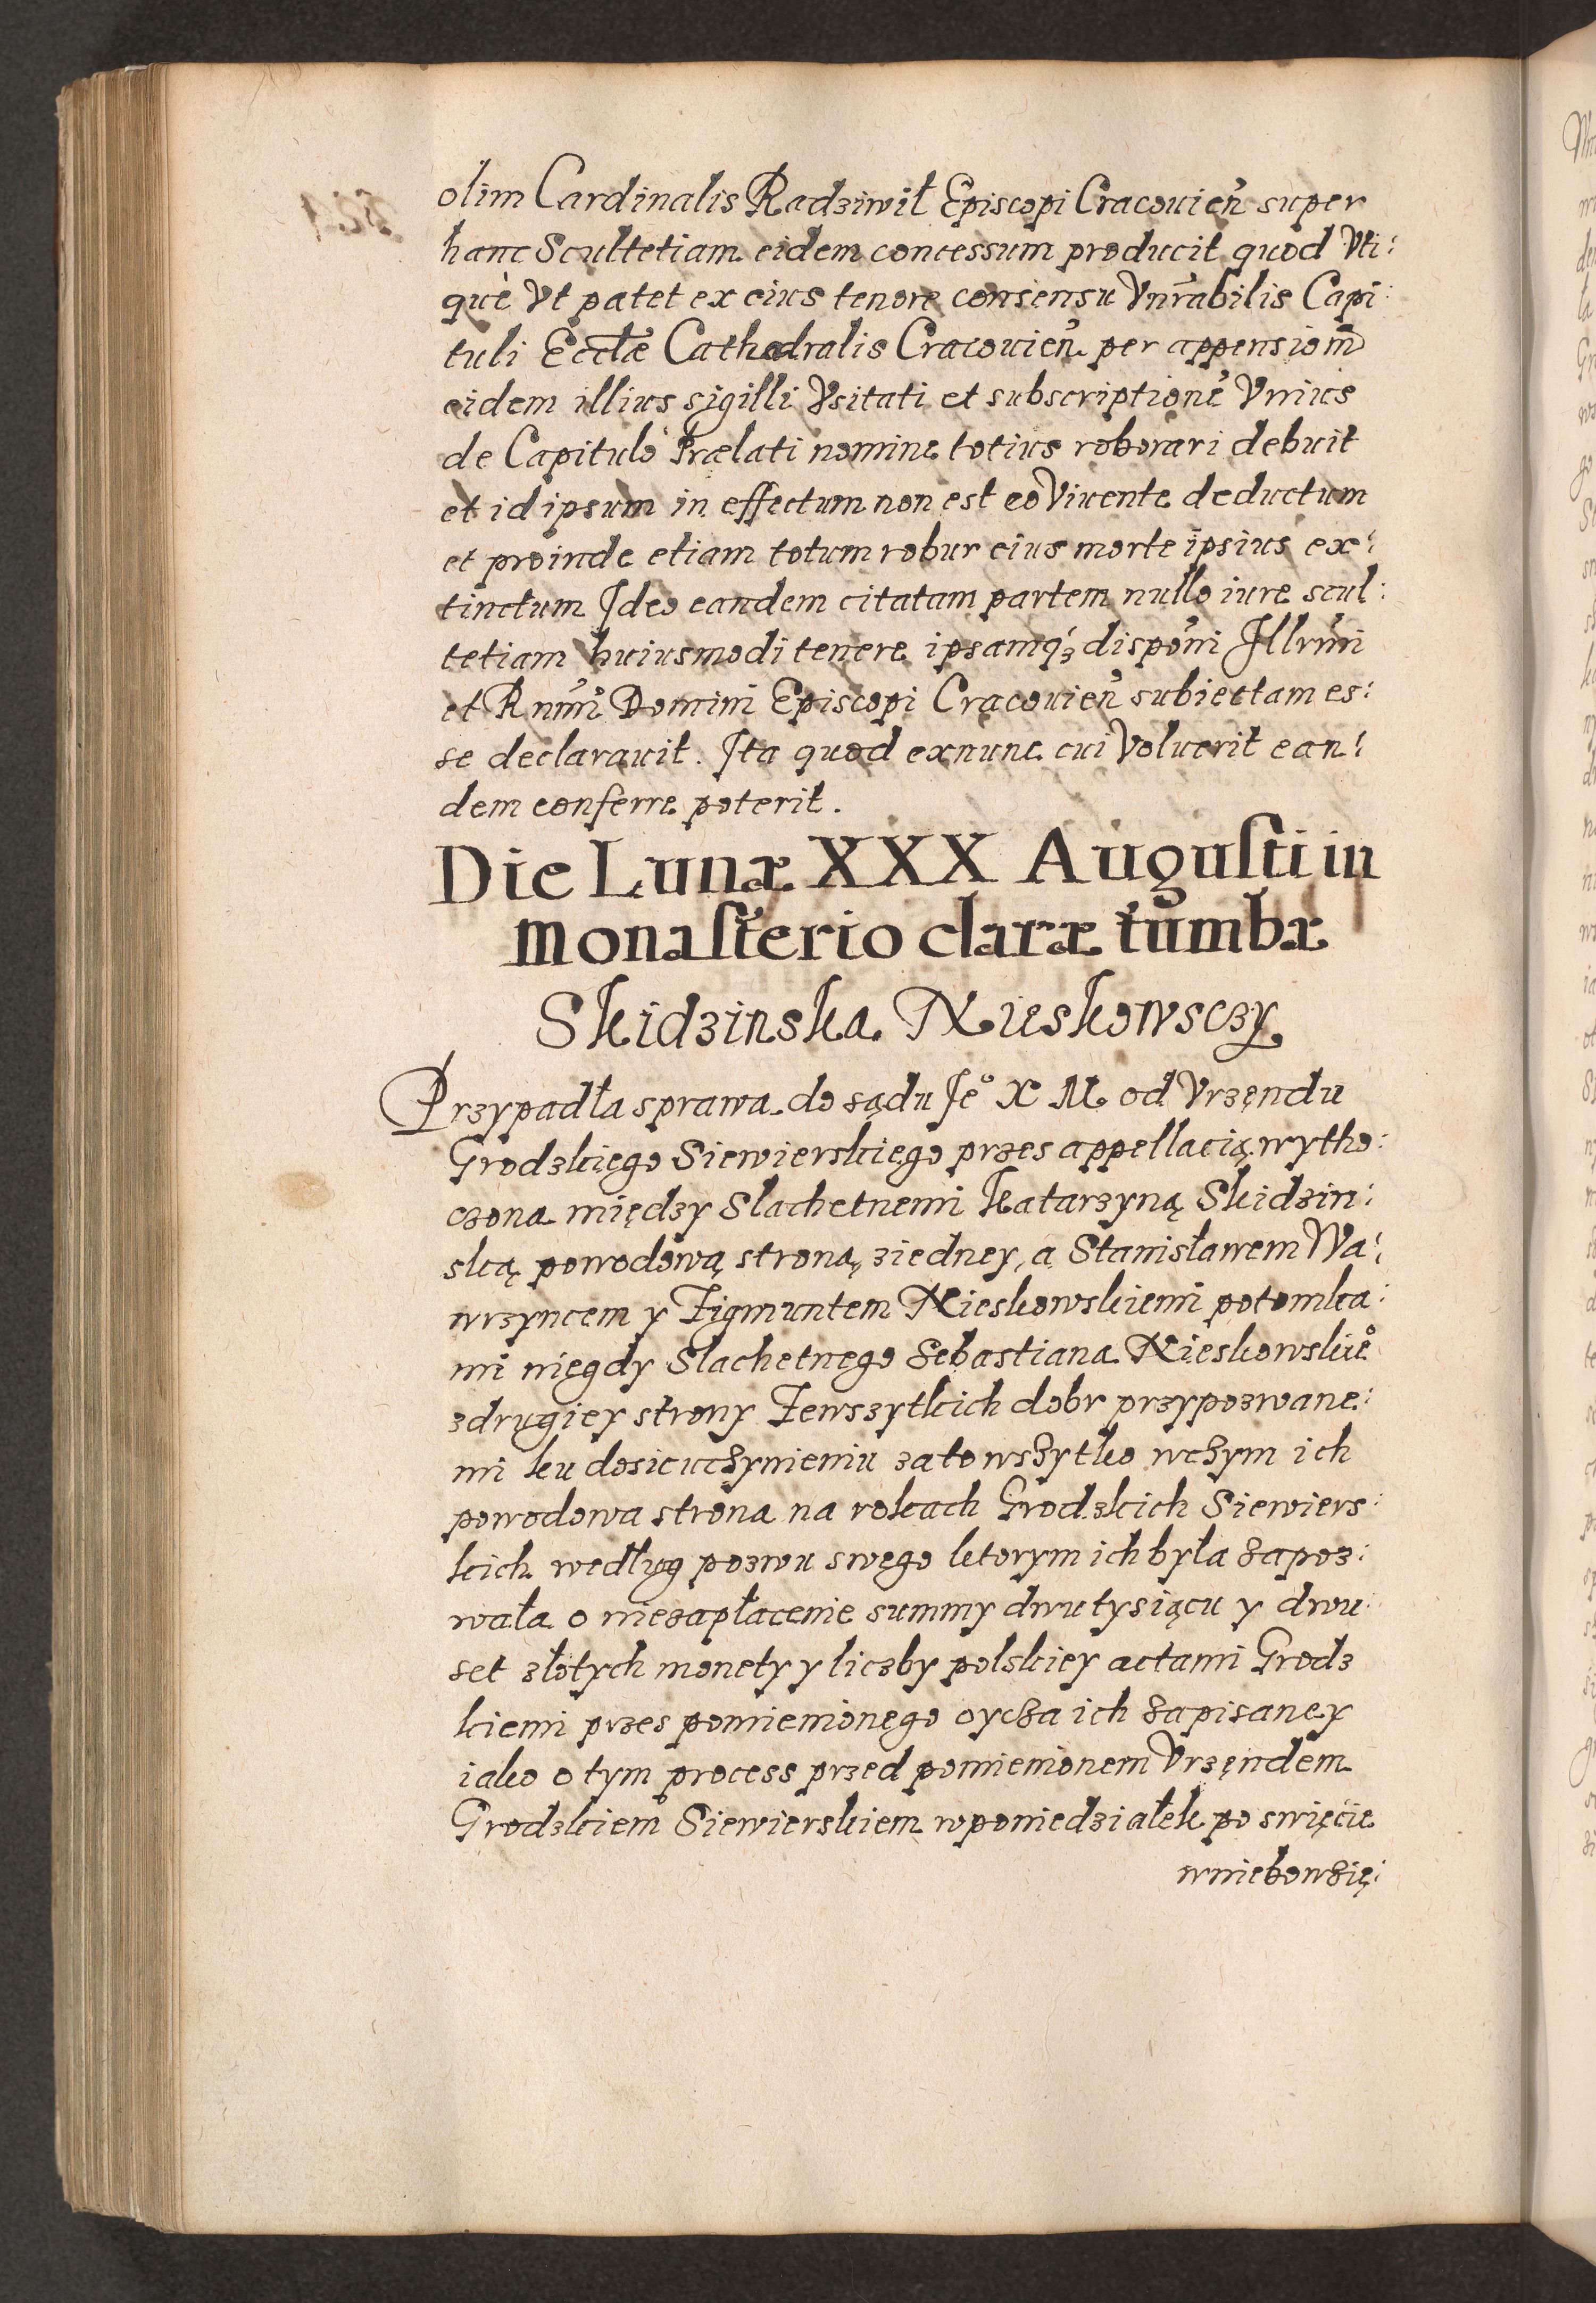 olim Cardinalis Radziwił Episcopi Cracouien̄ super
hanc Scultetiam eidem concessum producit quod Vti:
què Vt patet ex eius tenore consensu Vnr̄abilis Capi:
tuli Eccłæ Cathedralis Cracouien̄ per appensiom̄
eidem illius sigilli Vsitati et subscriptionē Vnius
de Capitulo Prælati nomine totius roborari debuit
et id ipsum in effectum non est eo Viuente deductum
et proinde etiam totum robur eius morte ipsius ex:
tinctum Ideo eandem citatam partem nullo iure scul:
tetiam huiusmodi tenere ipsamq́ꝫ dispōni Illrmi
et Rnmi Domini Episcopi Cracouien̄ subiectam es:
se declarauit. Ita quod exnunc cui Voluerit ean:
dem conferre poterit.
Die Lunæ XXX Augusti in
Monasterio claræ tumbæ
Skidzinska Nieskowsczy
Przypadła sprawa do sądu Jeº X M od Vrzęndu
Grodzkiego Siewierskiego przes appellacią wytho:
czona między Slachetnemi Katarzyną Skidzin:
ską powodową stroną ziedney, a Stanisławem Wa:
wrzyncem y Zigmuntem Nieskowskiemi potomka:
mi niegdy Slachetnego Sebastiana Nieskowskieº
zdrugiey strony Zewszytkich dobr przypozwane:
mi ku dosicuczynieniu zato wszytko wczym ich
powodowa strona na rokach Grodzkich Siewiers:
kich wedlug pozwu swego ktorym ich była zapoz:
wała o niezapłacenie summy dwu tysiącu y dwu
set złotych monety y liczby polskiey actami Grodz
kiemi przes pomienionego oycza ich zapisaney
iako o tym process przed pomienionem Vrzęndem
Grodzkiem Siewierskiem wponiedziałek po swięcie
wniebowzię: